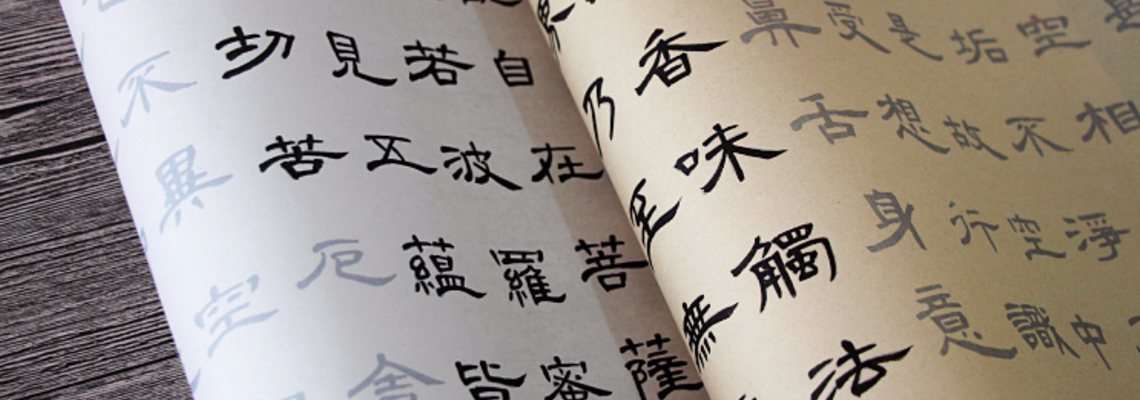 空相
垢不淨
是故空中
受想行識
鼻舌身意
香味觸法
界乃至無
自在菩薩
若波羅蜜
見五蘊皆
切苦厄舍
不異空